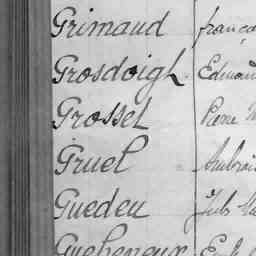 Grimaud frança
Grosdoigt Edmon
Grosset Pierre
Gruel Ambroi
Guedeu Jules
Gueheneux